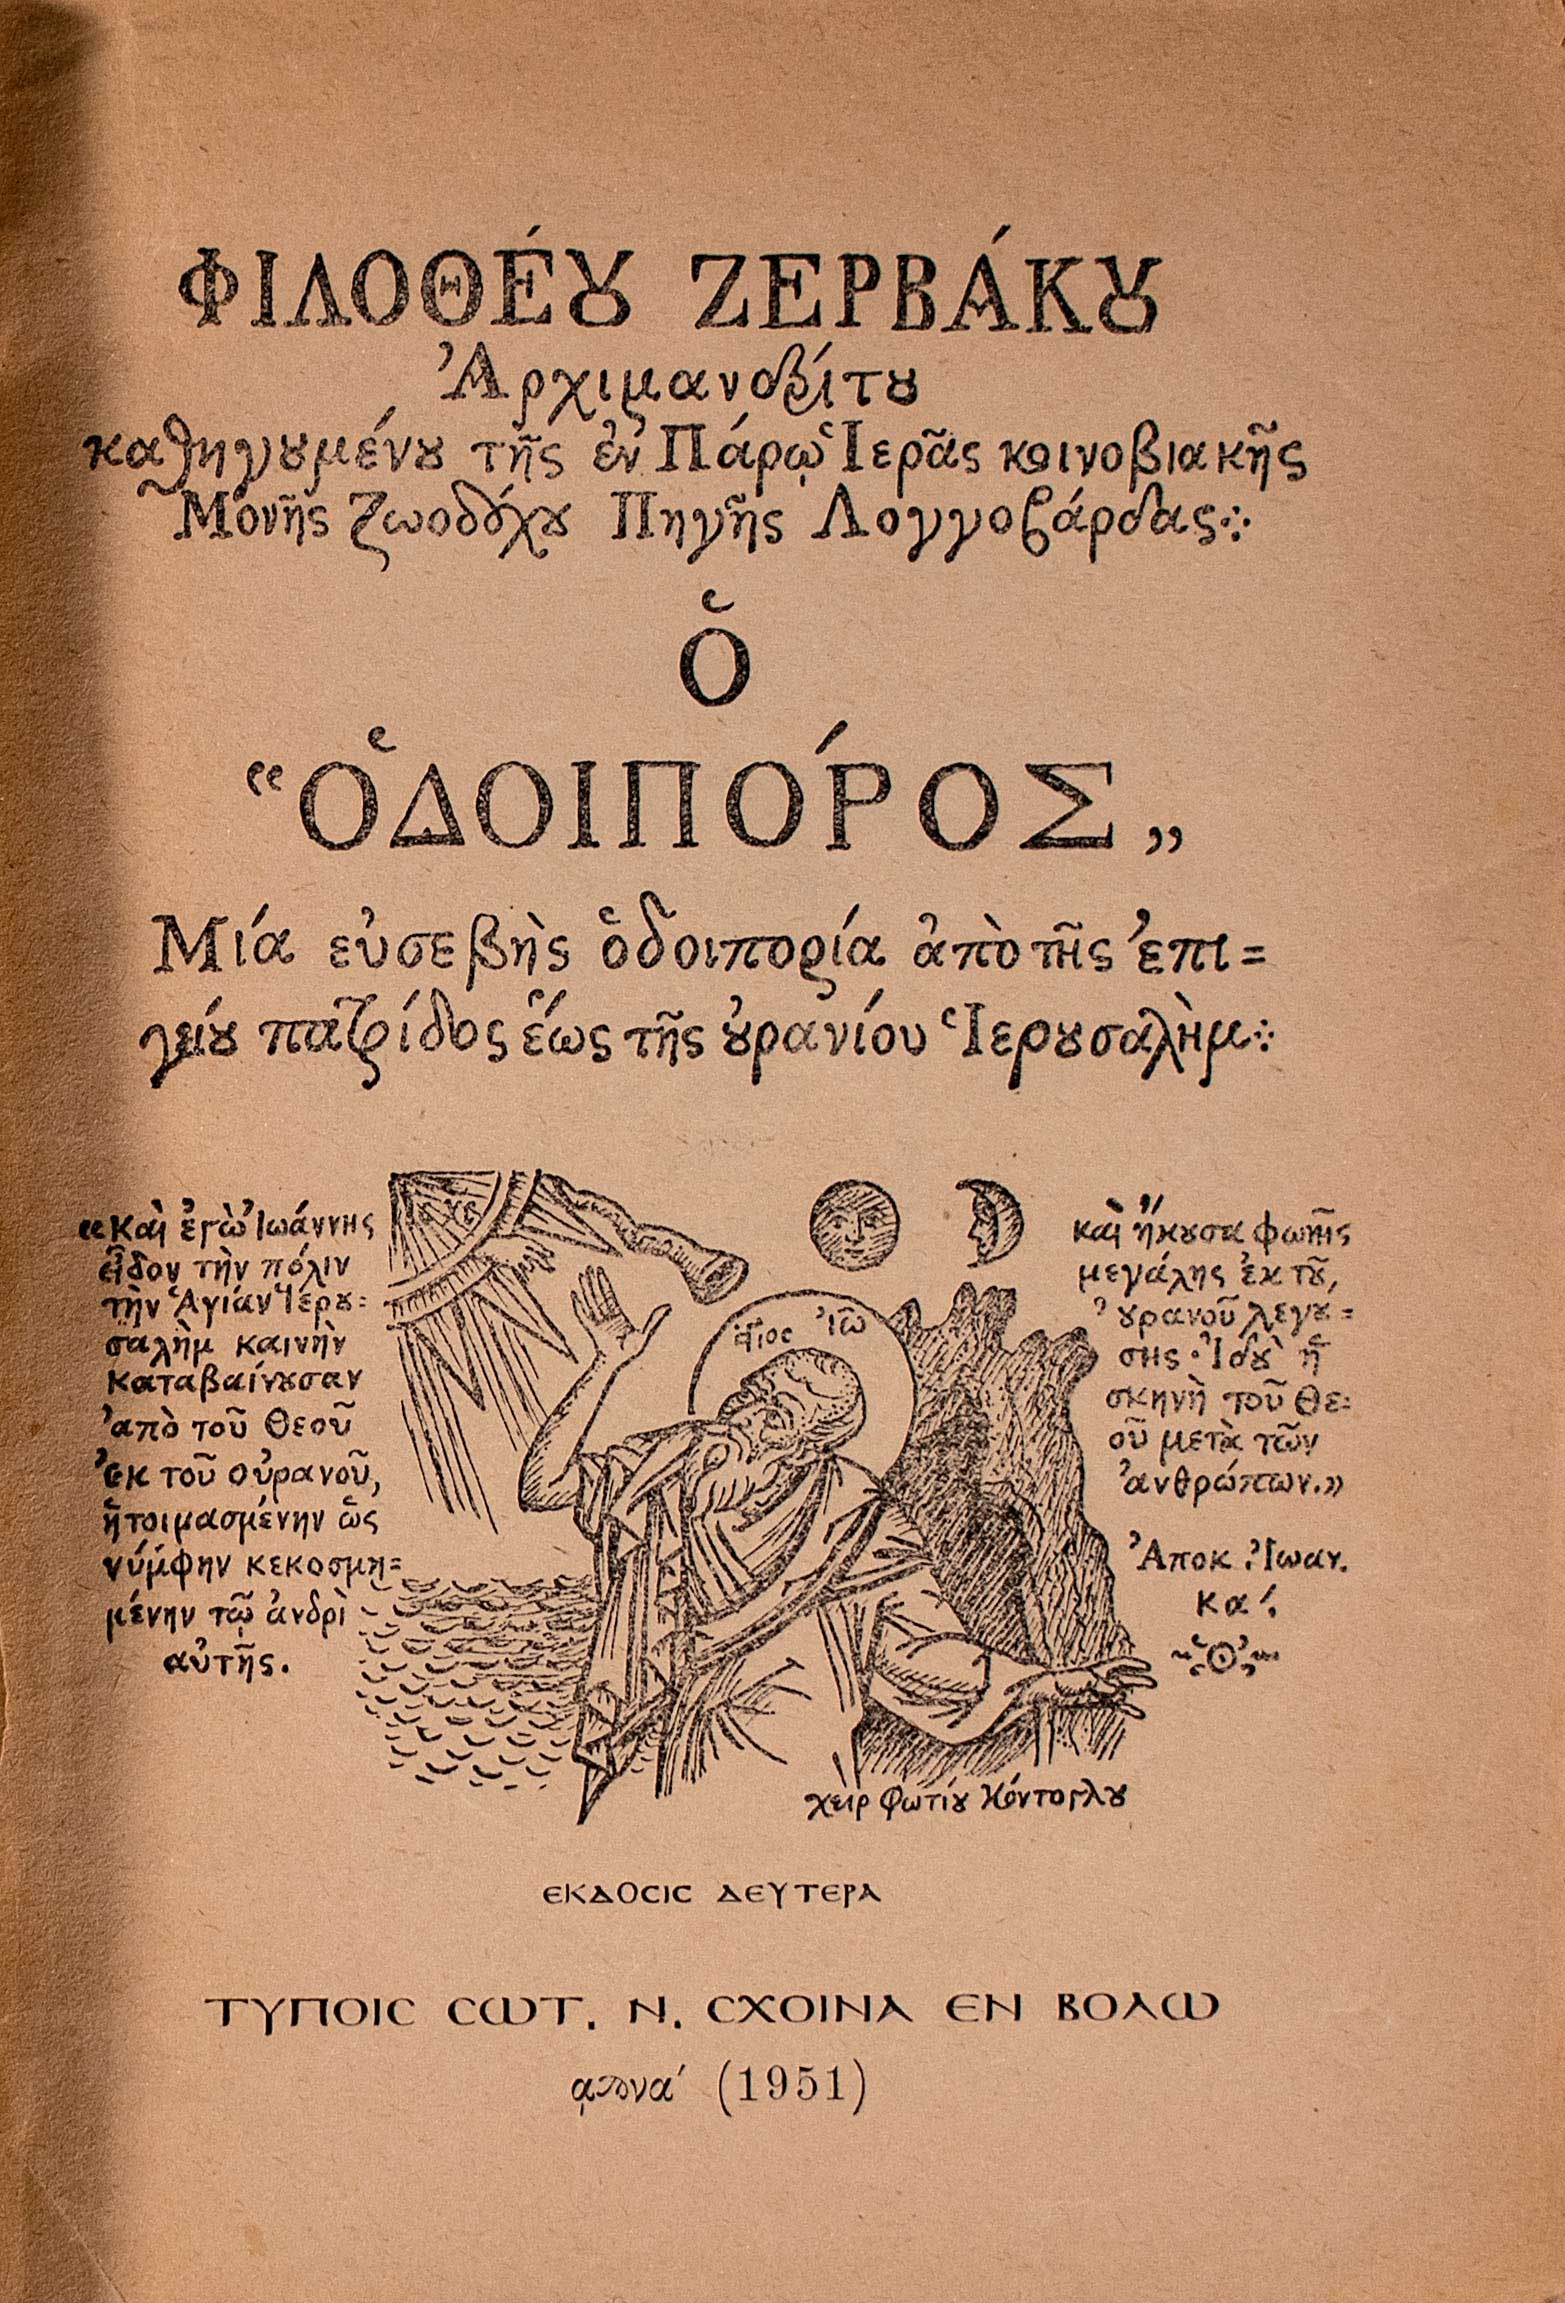 ΦΙΛΟΘΈȢ ΖΕΡΒΆΚȢ
Ἀρχιμανδρίτȣ
καθηγȣμένȣ τῆς ἐν Πάρῳ Ἱερᾶς κοινοβιακῆς
Μονῆς Ζωοδόχȣ Πηγῆς Λογγοβάρδας⁘
Ὁ
“ὉΔΟΙΠΌΡΟΣ„
Μία εὐσεβὴς ὁδοιπορία ἀπὸ τῆς ἐπι=
γείȣ πατρίδος ἕως τῆς ȣ̓ρανίου Ἱερȣσαλὴμ⁘
“Καὶ ἐγὼ Ἰωάννης
εἶδον τὴν πόλιν
τὴν Ἁγίαν Ἱερȣ=
σαλὴμ καινὴν
καταβαίνȣσαν
ἀπὸ τοῦ Θεοῦ
ἐκ τοῦ οὐρανοῦ,
ἡτοιμασμένην ὡς
νύμφην κεκοσμη=
μένην τῷ ἀνδρὶ
αὐτῆς.
καὶ ἤκȣσα φωνῆς
μεγάλης ἐκ τȣ͂,
ȣ̓ρανοῦ λεγȣ=
σης· Ἰδȣ̀ ἡ
σκηνὴ τοῦ Θε=
οῦ μετὰ τῶν
ἀνθρώπων.»
Ἀποκ. Ἰωαν.
κα΄.
ἅγιος Ἰω
χεὶρ Φωτίȣ Κόντογλȣ
ΕΚΔΟCΙC ΔΕΥΤΕΡΑ
ΤΥΠΟΙC CΩΤ. Ν. CΧΟΙΝΑ ΕΝ ΒΟΛΩ
͵αϡνα΄ (1951)